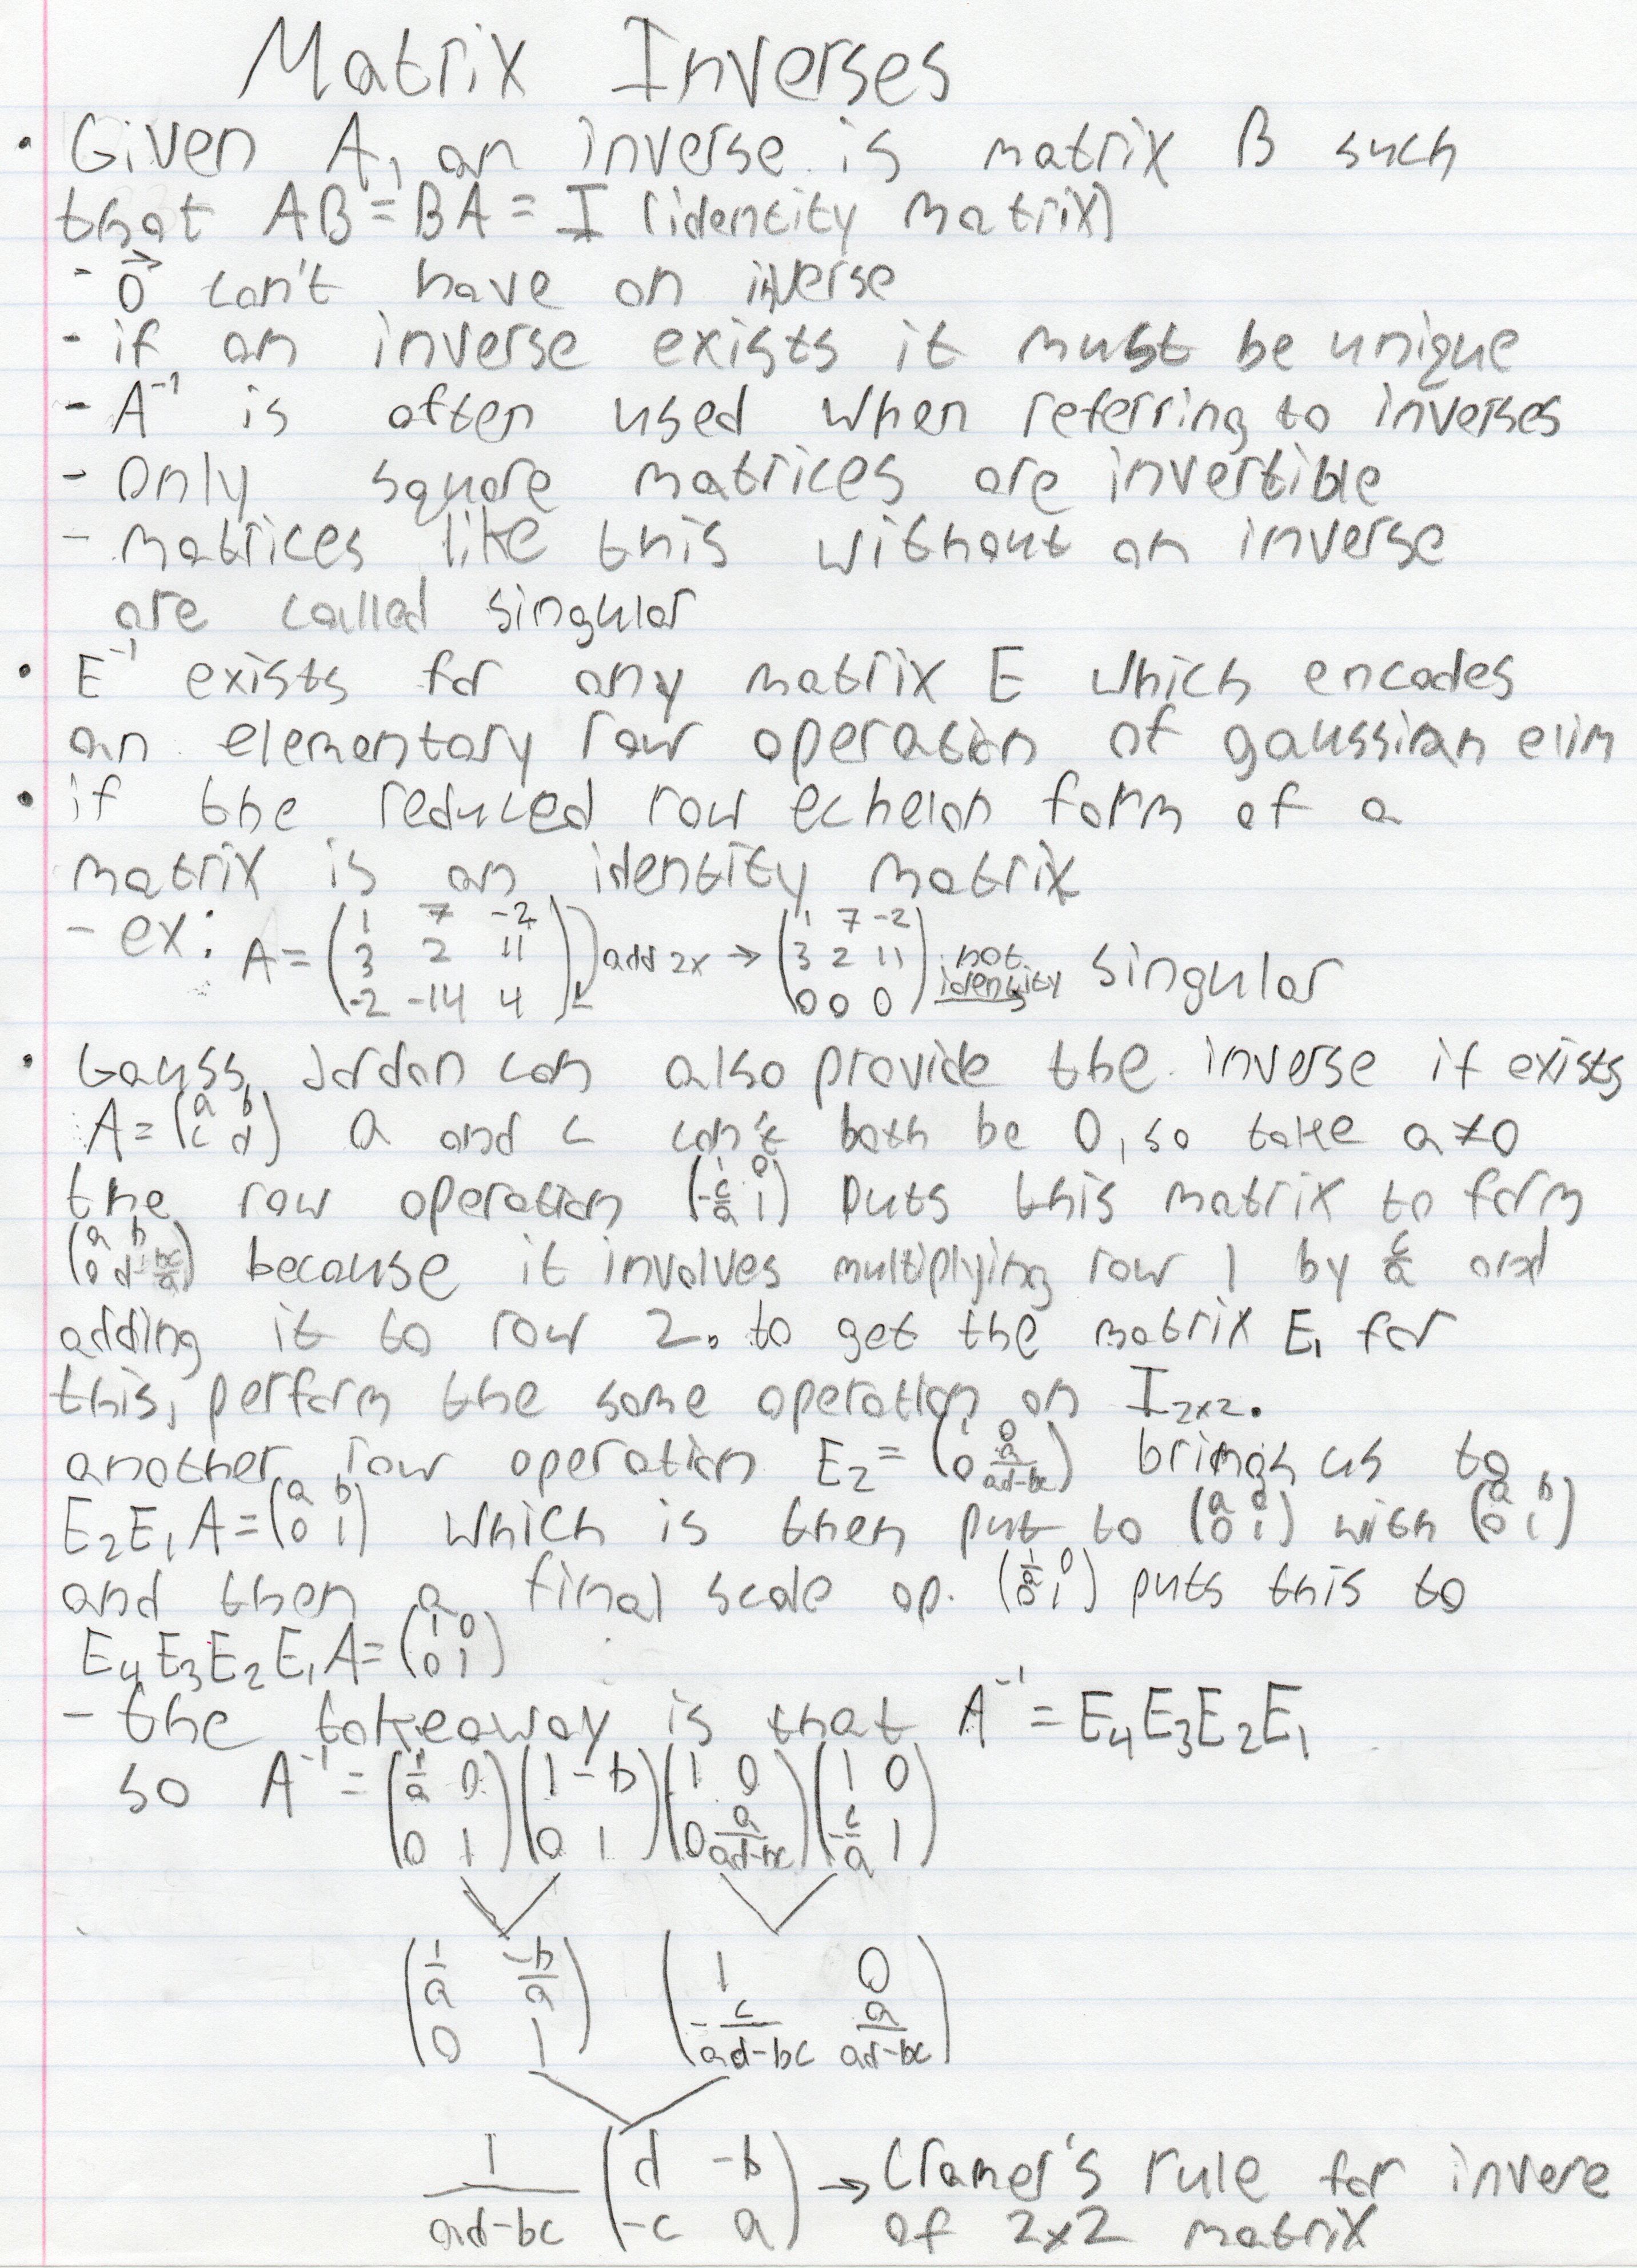 Matrix Inverses
• Given A, an inverse is matrix B such
that AB = BA = I (identity matrix)
- 0⃗ can't have an inverse
- if an inverse exists it must be unique
- A⁻¹ is often used when referring to inverses
- Only square matrices are invertible
- matrices like this without an inverse
are called singular
• E⁻¹ exists for any matrix E which encodes
an elementary row operation of gaussian elim
• if the reduced row echelon form of a
matrix is an identity matrix
- ex: A = (1 7 -2; 3 2 11; -2 -14 4) add 2x → (1 7 -2; 3 2 11; 0 0 0) not identity singular
• Gauss Jordan can also provide the inverse if exists
A = (a b; c d) a and c can't both be 0, so take a≠0
the row operation (1 0; -c/a 1) puts this matrix to form
(a b; 0 d-bc/a) because it involves multiplying row 1 by c/a and
adding it to row 2. to get the matrix E₁ for
this, perform the same operation on I₂ₓ₂.
another row operation E₂ = (1 0; 0 a/ad-bc) brings us to
E₂E₁A = (a b; 0 1) which is then put to (a 0; 0 1) with (a b; 0 1)
and then a final scale op. (1/a 0; 0 1) puts this to
E₄E₃E₂E₁A = (1 0; 0 1)
- the takeaway is that A⁻¹ = E₄E₃E₂E₁
so A⁻¹ = (1/a 0; 0 1)(1 -b; 0 1)(1 0; 0 a/ad-bc)(1 0; -c/a 1)
(1/a -b/a; 0 1) (1 0; -c/ad-bc a/ad-bc)
1/ad-bc (d -b; -c a) → Cramer's rule for invere
of 2x2 matrix